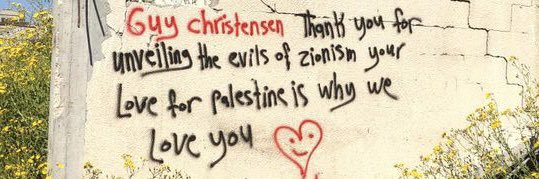 Guy christensen Thank you for
unveiling the evils of zionism your
Love for palestine is why we
Love you